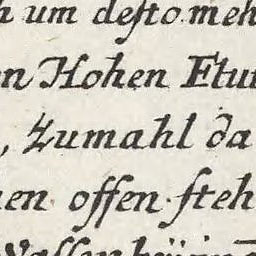 h um deſto meh
en Hohen Etu
, Zumahl da
en offen ſteh